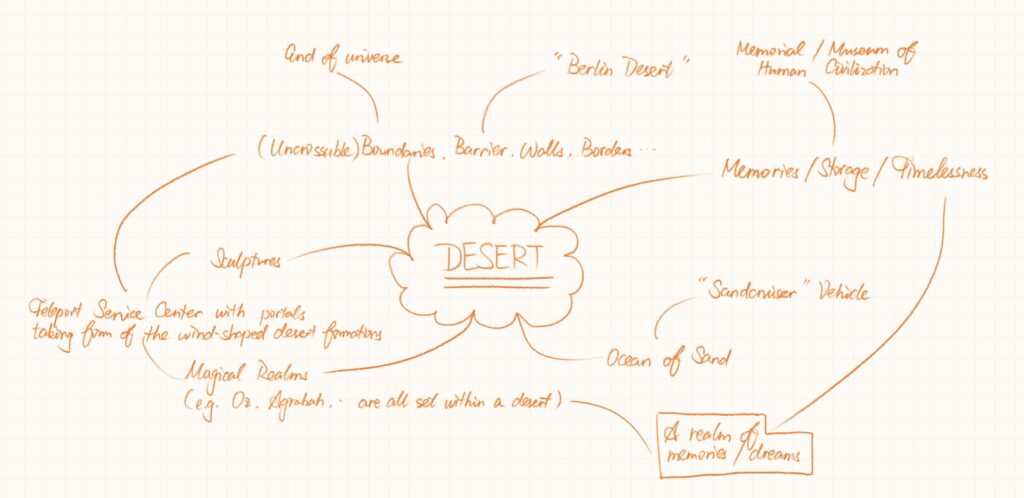 End of universe
"Berlin Desert"
Memorial / Museum of
Human Civilization
(Uncrossable) Boundaries, Barrier, Walls, Borders ...
Memories / Storage / Timelessness
DESERT
Sculptures
"Sandcruiser" Vehicle
Teleport Service Center with portals
taking form of the wind-shaped desert formations
Ocean of Sand
Magical Realms
(e.g. Oz, Agrabah, ... are all set within a desert)
A realm of
memories / dreams